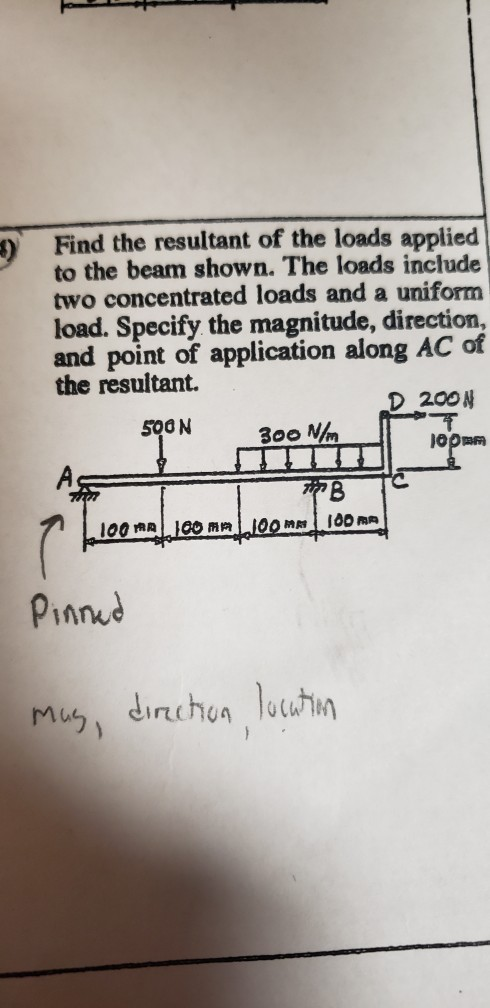 4) Find the resultant of the loads applied
to the beam shown. The loads include
two concentrated loads and a uniform
load. Specify the magnitude, direction,
and point of application along AC of
the resultant.
D 200N
500N
300 N/m
100mm
A
B
C
100 mm 100 mm 100 mm 100 mm
Pinned
mag, direction, location